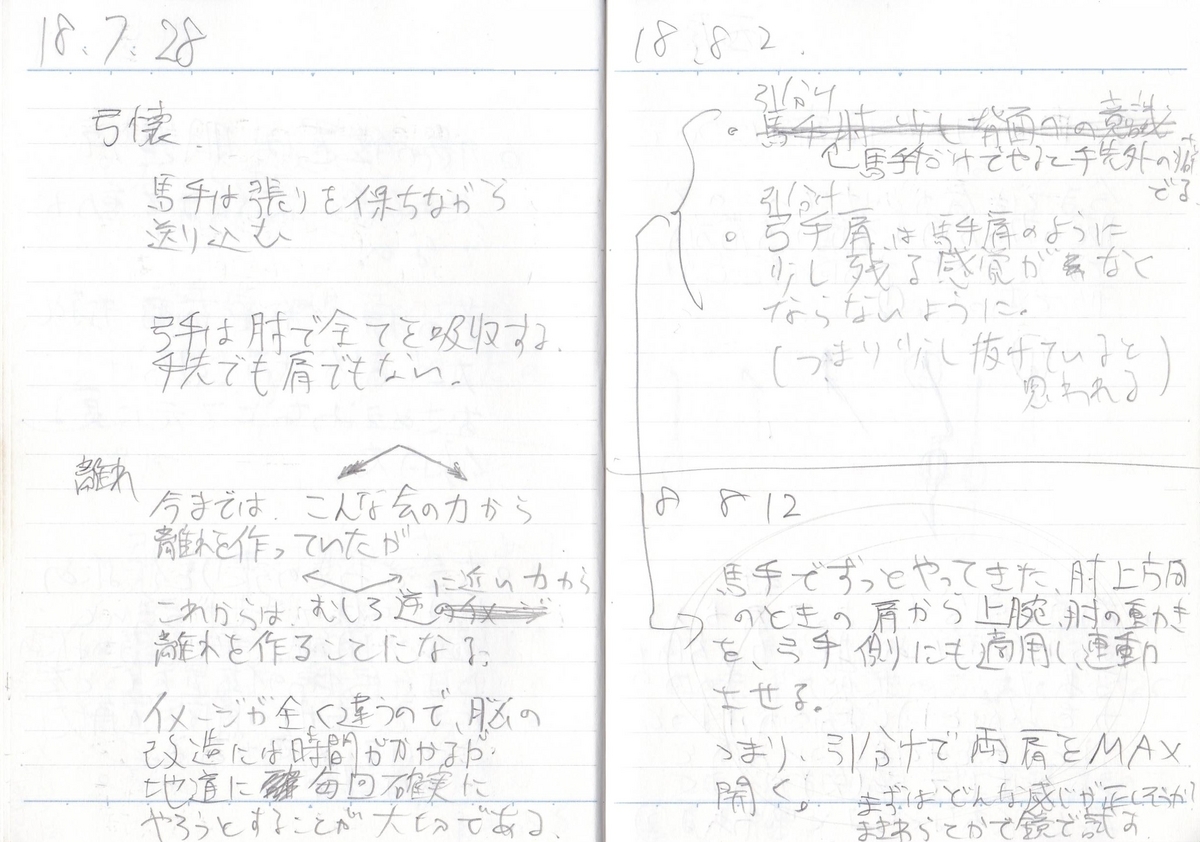 18.7.28
弓懐.
馬手は張りを保ちながら
送り込む
弓手は肘で全てを吸収する.
手先でも肩でもない。
離れ
今までは. こんな会の力から
離れを作っていたが
に近い力から
これからは. むしろ逆のイメージ
離れを作ることになる。
イメージが全く違うので、脳の
改造には時間がかかるが
地道に 毎回確実に
やろうとすることが大切である.
18.8.2.
引分け
。馬手肘 少し背面への意識
馬手だけでやると手先外の
でる
引分け
。弓手肩は馬手肩のように
少し残る感覚が なく
ならないように。
(つまり少し抜けていると
思われる)
8 8 12
馬手でずっとやってきた、肘上方向
のときの肩から上腕、肘の動き
を、弓手側にも適用し、連動
させる。
つまり、引分けで両肩をMAX
開く。
まずはどんな感じが正しそうか?
まきわらとかで鏡で試す.